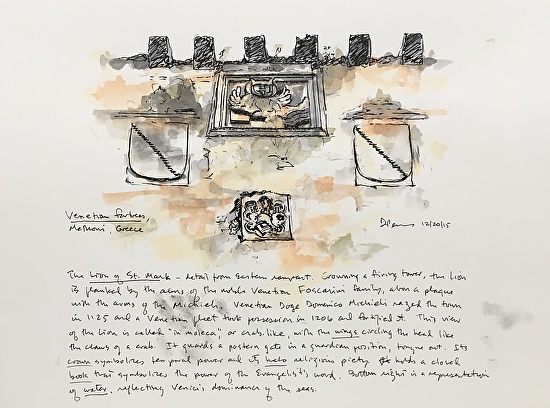 Venetian fortress,
Methoni, Greece
12/20/15
The Lion of St. Mark – detail from Eastern rampart. Crowning a firing tower, the Lion
is flanked by the arms of the noble Venetian Foscarini family, above a plaque
with the arms of the Michieli. Venetian Doge Domenico Michieli razed the town
in 1125 and a Venetian fleet took possession in 1206 and fortified it. This view
of the Lion is called "in moleca", or crab-like, with the wings circling the head like
the claws of a crab. It guards a postern gate in a guardian position, tongue out. Its
crown symbolizes temporal power and its halo religious piety. It holds a closed
book that symbolizes the power of the Evangelist's word. Bottom right is a representation
of water, reflecting Venice's dominance of the seas.